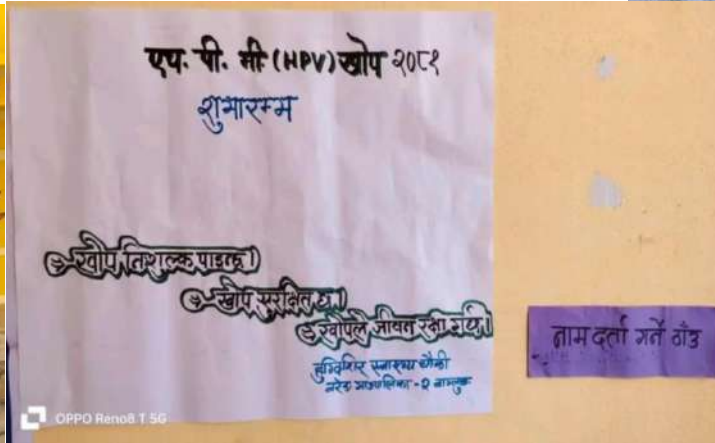 एच. पी. भी (HPV) खोप २०८१
शुभारम्भ
खोप निशुल्क पाइन्छ।
खोप सुरक्षित छ।
खोपले जीवन रक्षा गर्छ।
स्वास्थ्य चौकी
गाउपालिका - २
नाम दर्ता गर्ने ठाँउ
OPPO Reno8 T 5G